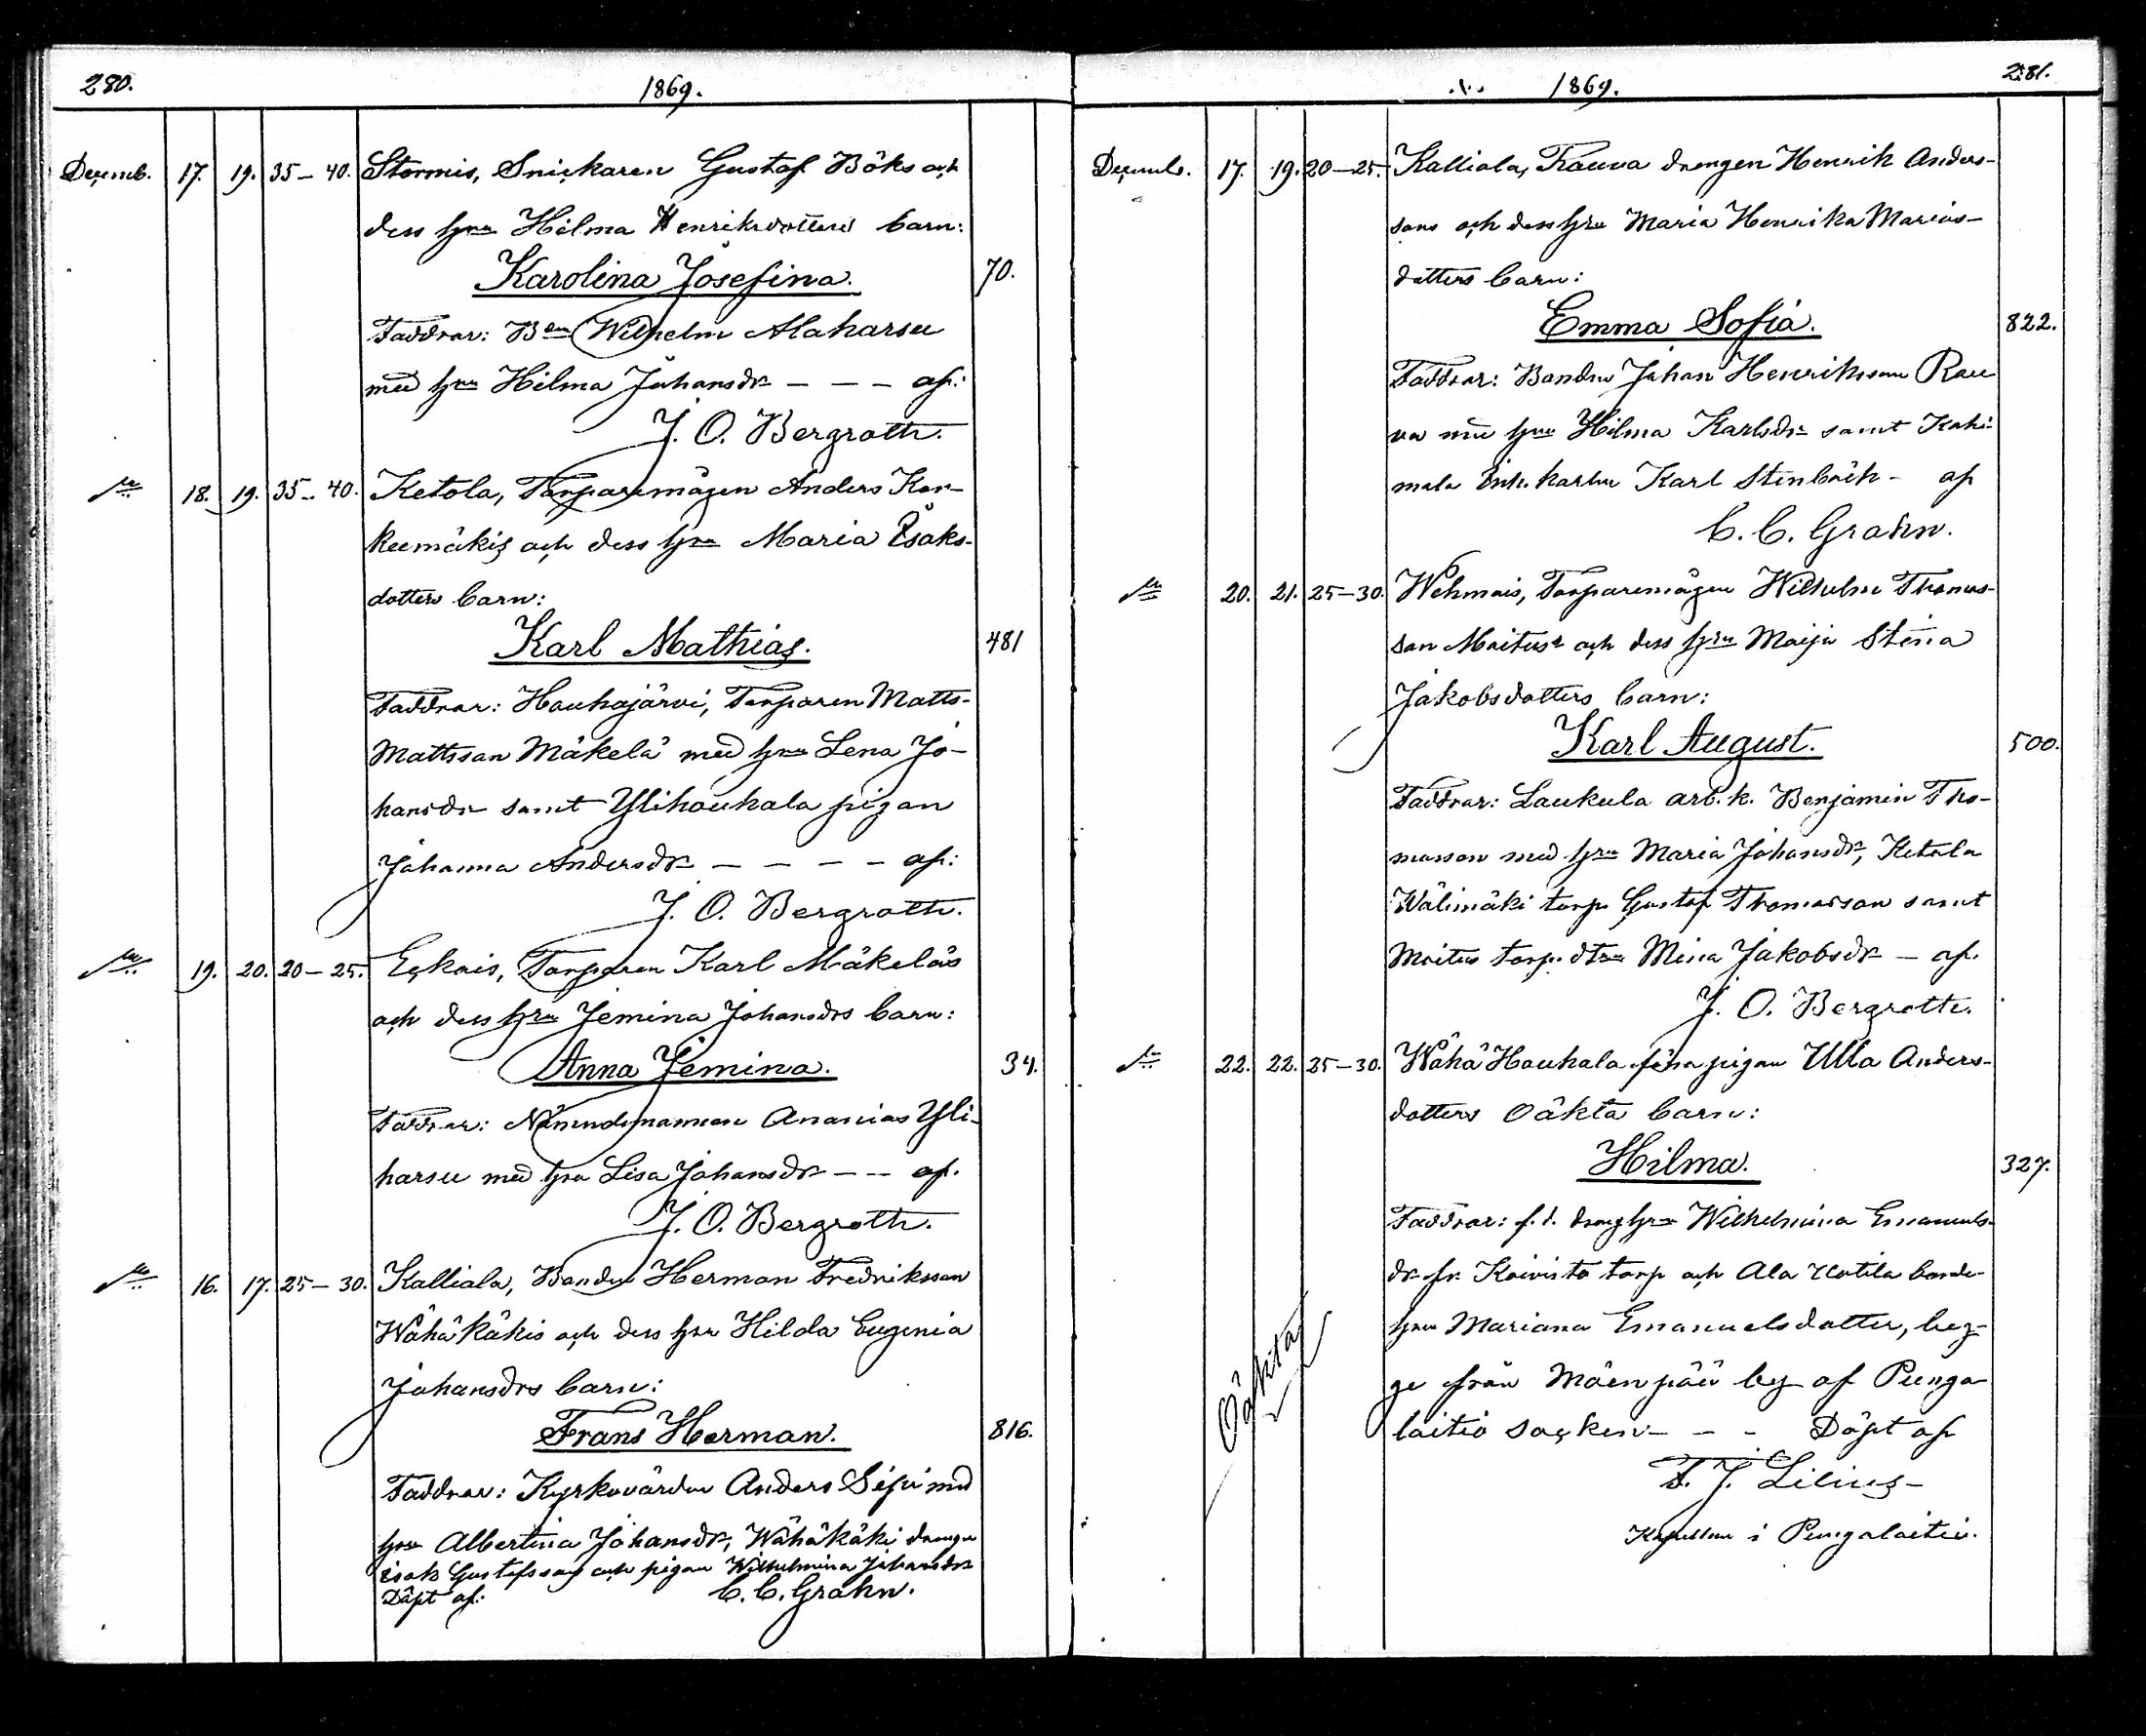 280.
1869.
Decemb. 17. 19. 35–40. Stormis, Snickaren Gustaf Böks och
dess hru Hilma Henriksdotters barn:
Karolina Josefina. 70.
Faddrar: Bdn Wilhelm Alaharsu
med hru Hilma Johansdr – – – af:
J. O. Bergroth.
18. 19. 35–40. Ketola, Torparemågen Anders Kor-
keemäkis och dess hru Maria Isaks-
dotters barn:
Karl Mathias. 481
Faddrar: Houhajärvi, Torparen Matts
Mattsson Mäkelä med hru Lena Jo-
hansdr samt Ylihouhala pigan
Johanna Andersdr – – – – af:
J. O. Bergroth.
19. 20. 20–25. Eckois, Torparen Karl Mäkeläs
och dess hru Jemina Johansdrs barn:
Anna Jemina. 34.
Faddrar: Nämndemannen Ananias Yli-
harsu med hru Lisa Johansdr – – af.
J. O. Bergroth.
16. 17. 25–30. Kalliala, Bonden Herman Fredriksson
Wähäkäkis och dess hru Hilda Eugenia
Johansdrs barn:
Frans Herman. 816.
Faddrar: Kyrkovärden Anders Sipi med
hru Albertina Johansdr, Wähäkäki drengen
Isak Gustafsson och pigan Wilhelmina Johansdr
Döpt af: C. C. Grahn.
1869.
281.
Decemb. 17. 19. 20–25. Kalliala, Rauva drengen Henrik Anders-
sons och dess hru Maria Henrika Marias-
dotters barn:
Emma Sofia. 822.
Faddrar: Bonden Johan Henriksson Rau
va med hru Hilma Karlsdr samt Kahi-
mala Enk. karlen Karl Stenbäck – af
C. C. Grahn.
20. 21. 25–30. Wehmais, Torparemågen Wilhelm Thomas-
son Moitus och dess hru Maija Stina
Jakobsdotters barn:
Karl August. 500.
Faddrar: Laukula arb. k. Benjamin Tho-
masson med hru Maria Johansdr, Ketola
Wälimäki torp. Gustaf Thomasson samt
Moitus torp. dtrn Mina Jakobsdr – af.
J. O. Bergroth.
22. 22. 25–30. Wähä Houhala pigan Ulla Anders-
dotters oäkta barn:
Hilma. 327.
Faddrar: f. d. dreng hru Wilhelmina Emanuels-
dr fr. Koivisto torp och Ala Uotila bonde-
hru Mariana Emanuelsdotter, beg-
ge från Mäenpää by af Punga-
laitio socken – – – Döpt af
F. J. Lilius –
Kapellan i Pungalaitio.
Oäkta